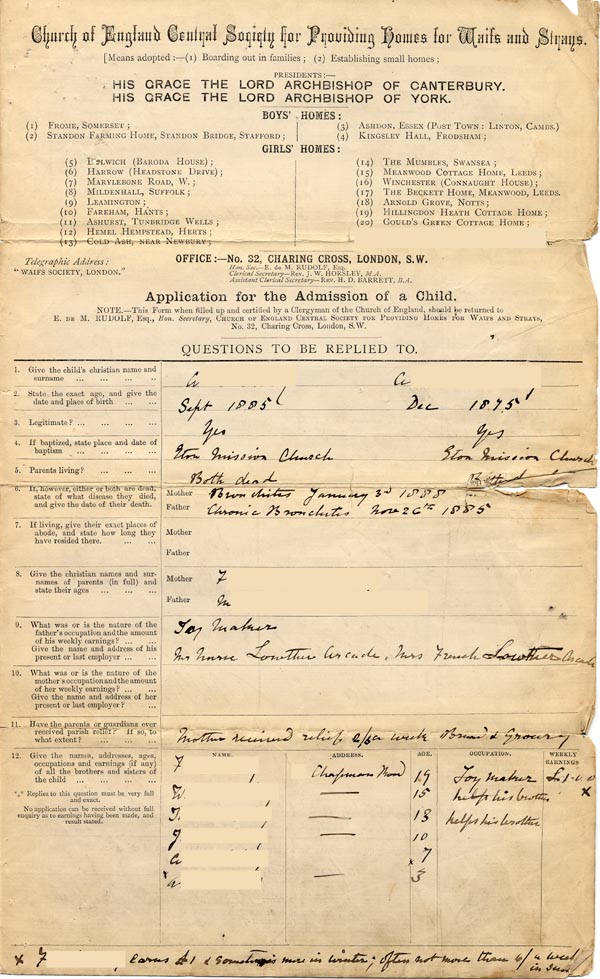 Church of England Central Society for Providing Homes for Waifs and Strays.
[Means adopted:—(1) Boarding out in families; (2) Establishing small homes;
PRESIDENTS:—
HIS GRACE THE LORD ARCHBISHOP OF CANTERBURY.
HIS GRACE THE LORD ARCHBISHOP OF YORK.
BOYS' HOMES:
(1) FROME, SOMERSET;
(2) STANDON FARMING HOME, STANDON BRIDGE, STAFFORD;
(3) ASHDON, ESSEX (POST TOWN: LINTON, CAMBS.)
(4) KINGSLEY HALL, FRODSHAM;
GIRLS' HOMES:
(5) DULWICH (BARODA HOUSE);
(6) HARROW (HEADSTONE DRIVE);
(7) MARYLEBONE ROAD, W.;
(8) MILDENHALL, SUFFOLK;
(9) LEAMINGTON;
(10) FAREHAM, HANTS;
(11) ASHURST, TUNBRIDGE WELLS;
(12) HEMEL HEMPSTEAD, HERTS;
(13) COLD ASH, NEAR NEWBURY;
(14) THE MUMBLES, SWANSEA;
(15) MEANWOOD COTTAGE HOME, LEEDS;
(16) WINCHESTER (CONNAUGHT HOUSE);
(17) THE BECKETT HOME, MEANWOOD, LEEDS.
(18) ARNOLD GROVE, NOTTS;
(19) HILLINGDON HEATH COTTAGE HOME;
(20) GOULD'S GREEN COTTAGE HOME;
Telegraphic Address:
"WAIFS SOCIETY, LONDON."
OFFICE:—No. 32, CHARING CROSS, LONDON, S.W.
Hon. Sec.—E. de M. RUDOLF, Esq.
Clerical Secretary—REV. J. W. HORSLEY, M.A.
Assistant Clerical Secretary—REV. H. D. BARRETT, B.A.
Application for the Admission of a Child.
NOTE.—This Form when filled up and certified by a Clergyman of the Church of England, should be returned to
E. DE M. RUDOLF, Esq., Hon. Secretary, CHURCH OF ENGLAND CENTRAL SOCIETY FOR PROVIDING HOMES FOR WAIFS AND STRAYS,
No. 32, Charing Cross, London, S.W.
QUESTIONS TO BE REPLIED TO.
1. Give the child's christian name and
surname ... ... ... ...
A A
2. State the exact age, and give the
date and place of birth ... ...
Sept 1885 Dec 1875
3. Legitimate? ... ... ... ...
Yes Yes
4. If baptized, state place and date of
baptism ... ... ... ...
Eton Mission Church Eton Mission Church
5. Parents living? ... ... ...
Both dead Both dead
6. If, however, either or both are dead,
state of what disease they died,
and give the date of their death.
Mother Bronchites January 3rd 1888
Father Chronic Bronchites Nov 26th 1885
7. If living, give their exact places of
abode, and state how long they
have resided there. ... ...
Mother
Father
8. Give the christian names and sur-
names of parents (in full) and
state their ages ... ... ...
Mother F
Father M
9. What was or is the nature of the
father's occupation and the amount
of his weekly earnings? ... ...
Give the name and address of his
present or last employer ... ...
Toy Maker
Mr Nurse Lowther Arcade, Mrs French Lowther Arcade
10. What was or is the nature of the
mother's occupation and the amount
of her weekly earnings? ... ...
Give the name and address of her
present or last employer? ...
11. Have the parents or guardians ever
received parish relief? If so, to
what extent? ... ... ...
Mother received relief 2/6 a week Bread & Grocery
12. Give the names, addresses, ages,
occupations and earnings (if any)
of all the brothers and sisters of
the child ... ... ... ...
*** Replies to this question must be very full
and exact.
No application can be received without full
enquiry as to earnings having been made, and
result stated.
NAME. ADDRESS. AGE. OCCUPATION. WEEKLY
EARNINGS
F Chapman Road 19 Toy maker £1-0-0
W. — 15 helps his brother x
T. — 13 helps his brother
J — 10
A x 7
x A — 3
x F , Earns £1 & sometimes more in winter; often not more than 6/ a week
in Sum